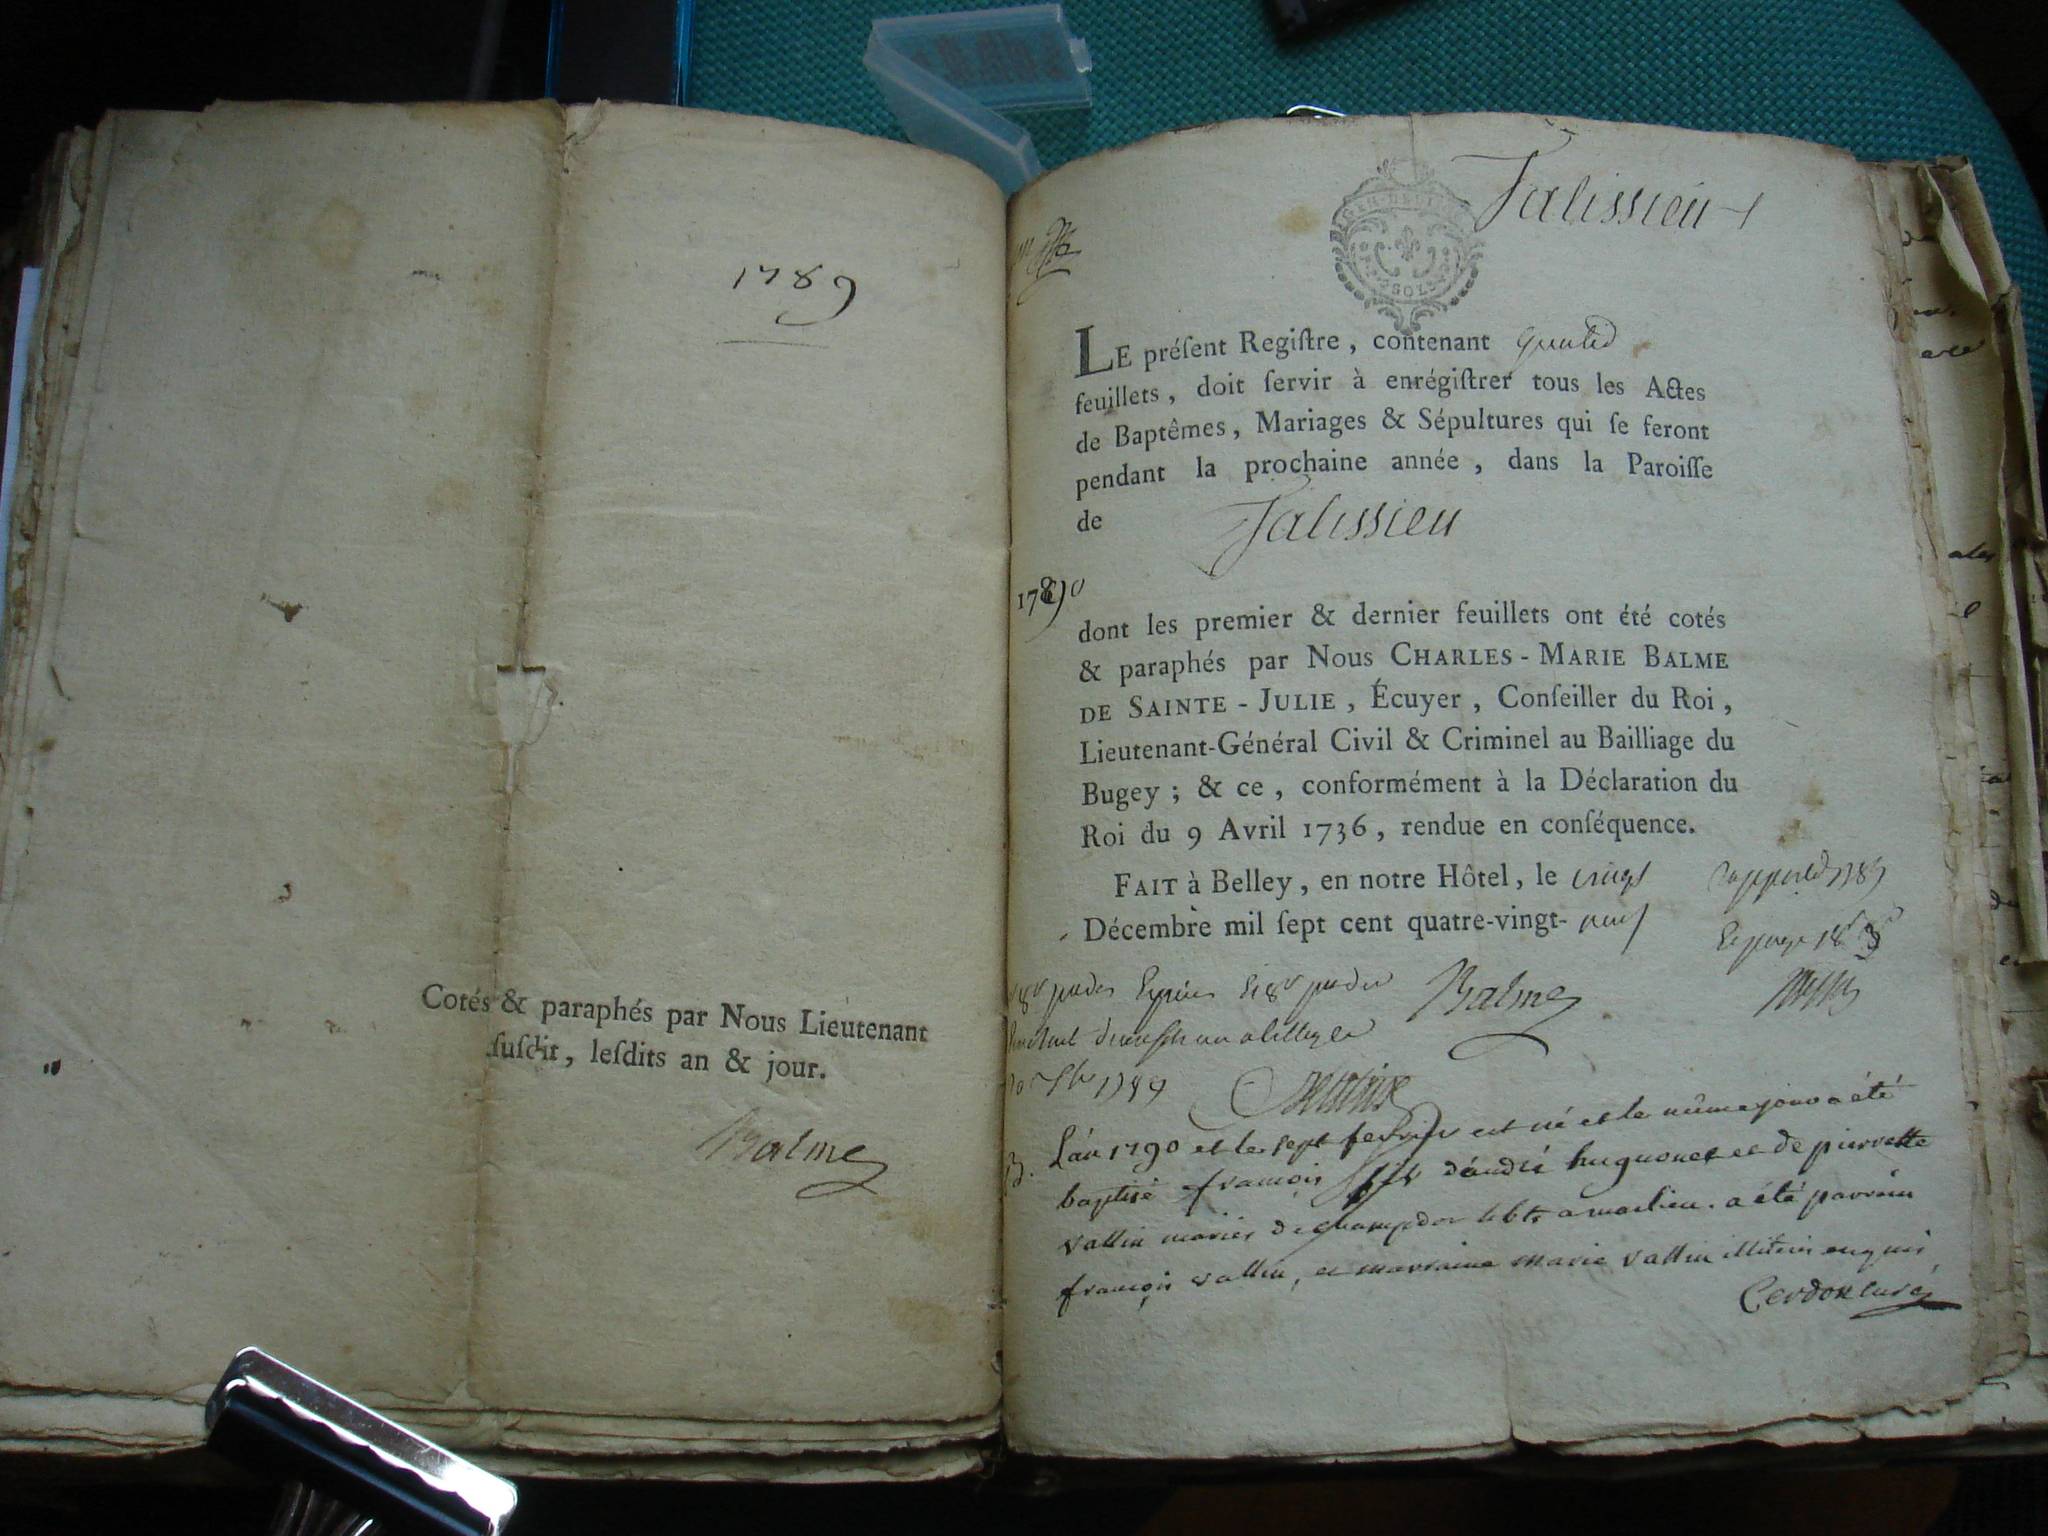 1789
Cotés & paraphés par Nous Lieutenant
susdit, lesdits an & jour.
Balme
Jalissieu
SOLS
LE présent Registre, contenant
feuillets, doit servir à enrégistrer tous les Actes
de Baptêmes, Mariages & Sépultures qui se feront
pendant la prochaine année, dans la Paroisse
de Jalissieu
1790
dont les premier & dernier feuillets ont été cotés
& paraphés par Nous CHARLES-MARIE BALME
DE SAINTE-JULIE, Écuyer, Conseiller du Roi,
Lieutenant-Général Civil & Criminel au Bailliage du
Bugey; & ce, conformément à la Déclaration du
Roi du 9 Avril 1736, rendue en conséquence.
FAIT à Belley, en notre Hôtel, le vingt
Décembre mil sept cent quatre-vingt-neuf
Balme
1789
B. L'an 1790 et le sept fevrier est né et le même jour a été
baptisé françois fils d'andré hugonet et de pierrette
vallin mariés de champdor a été parrain
françois vallin, et marraine marie vallin illiteris enquis
Cerdon curé